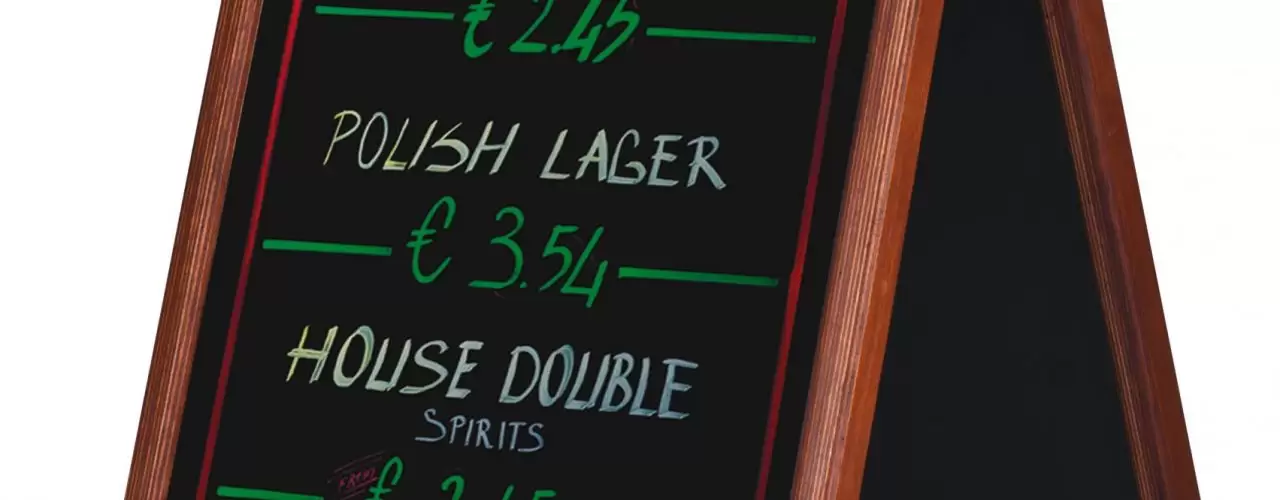 € 2.45
POLISH LAGER
€ 3.54
HOUSE DOUBLE
SPIRITS
FROM
€